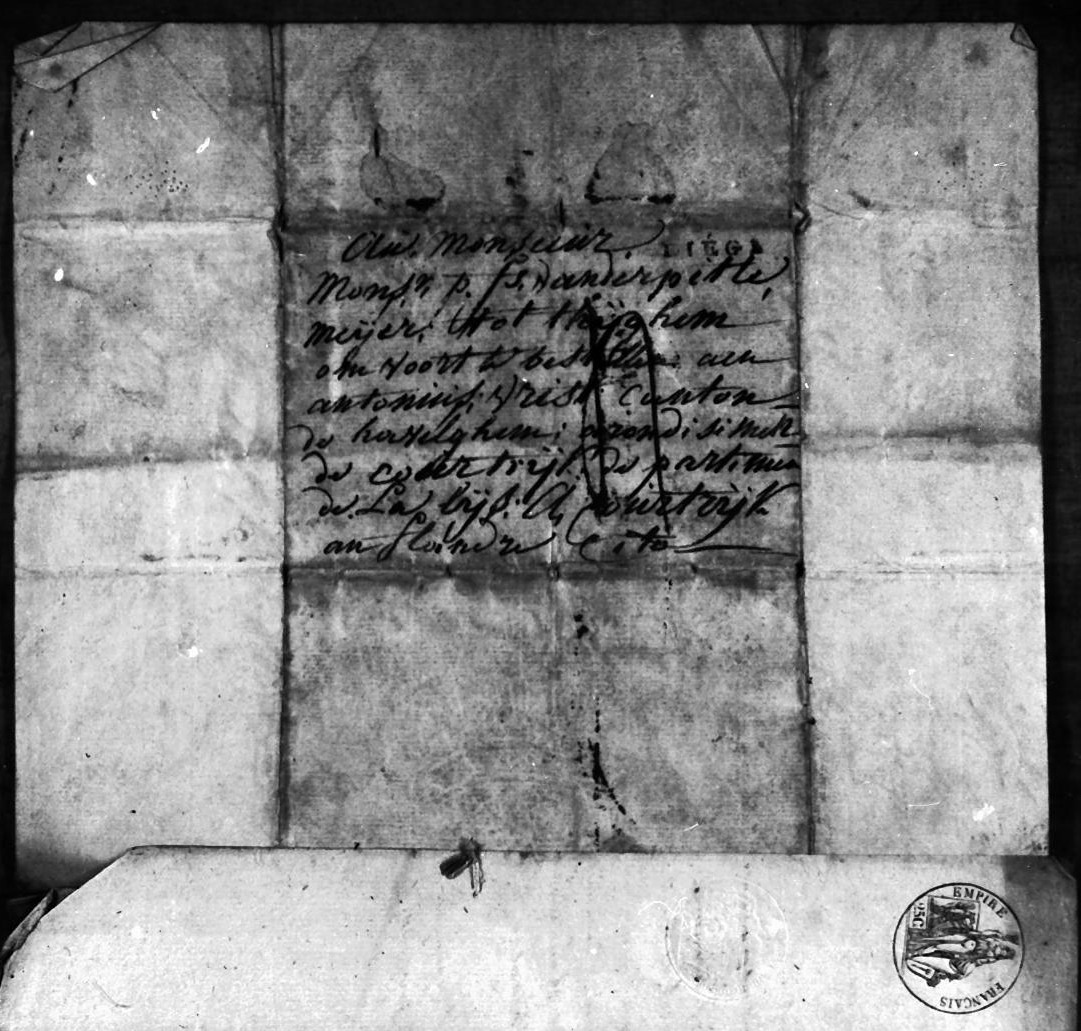 Au. Monsieur
LIÉGE
Monsr. p. fs. vanderpette,
meijer; tot heijghem
om voort te bestellen aen
antonius; vrist; Canton
de havelghem; arondisiment
de courtrijk. de partimen
de La lijs. A, courtrijk
an flandre Cito
EMPIRE
25C
FRANÇAIS